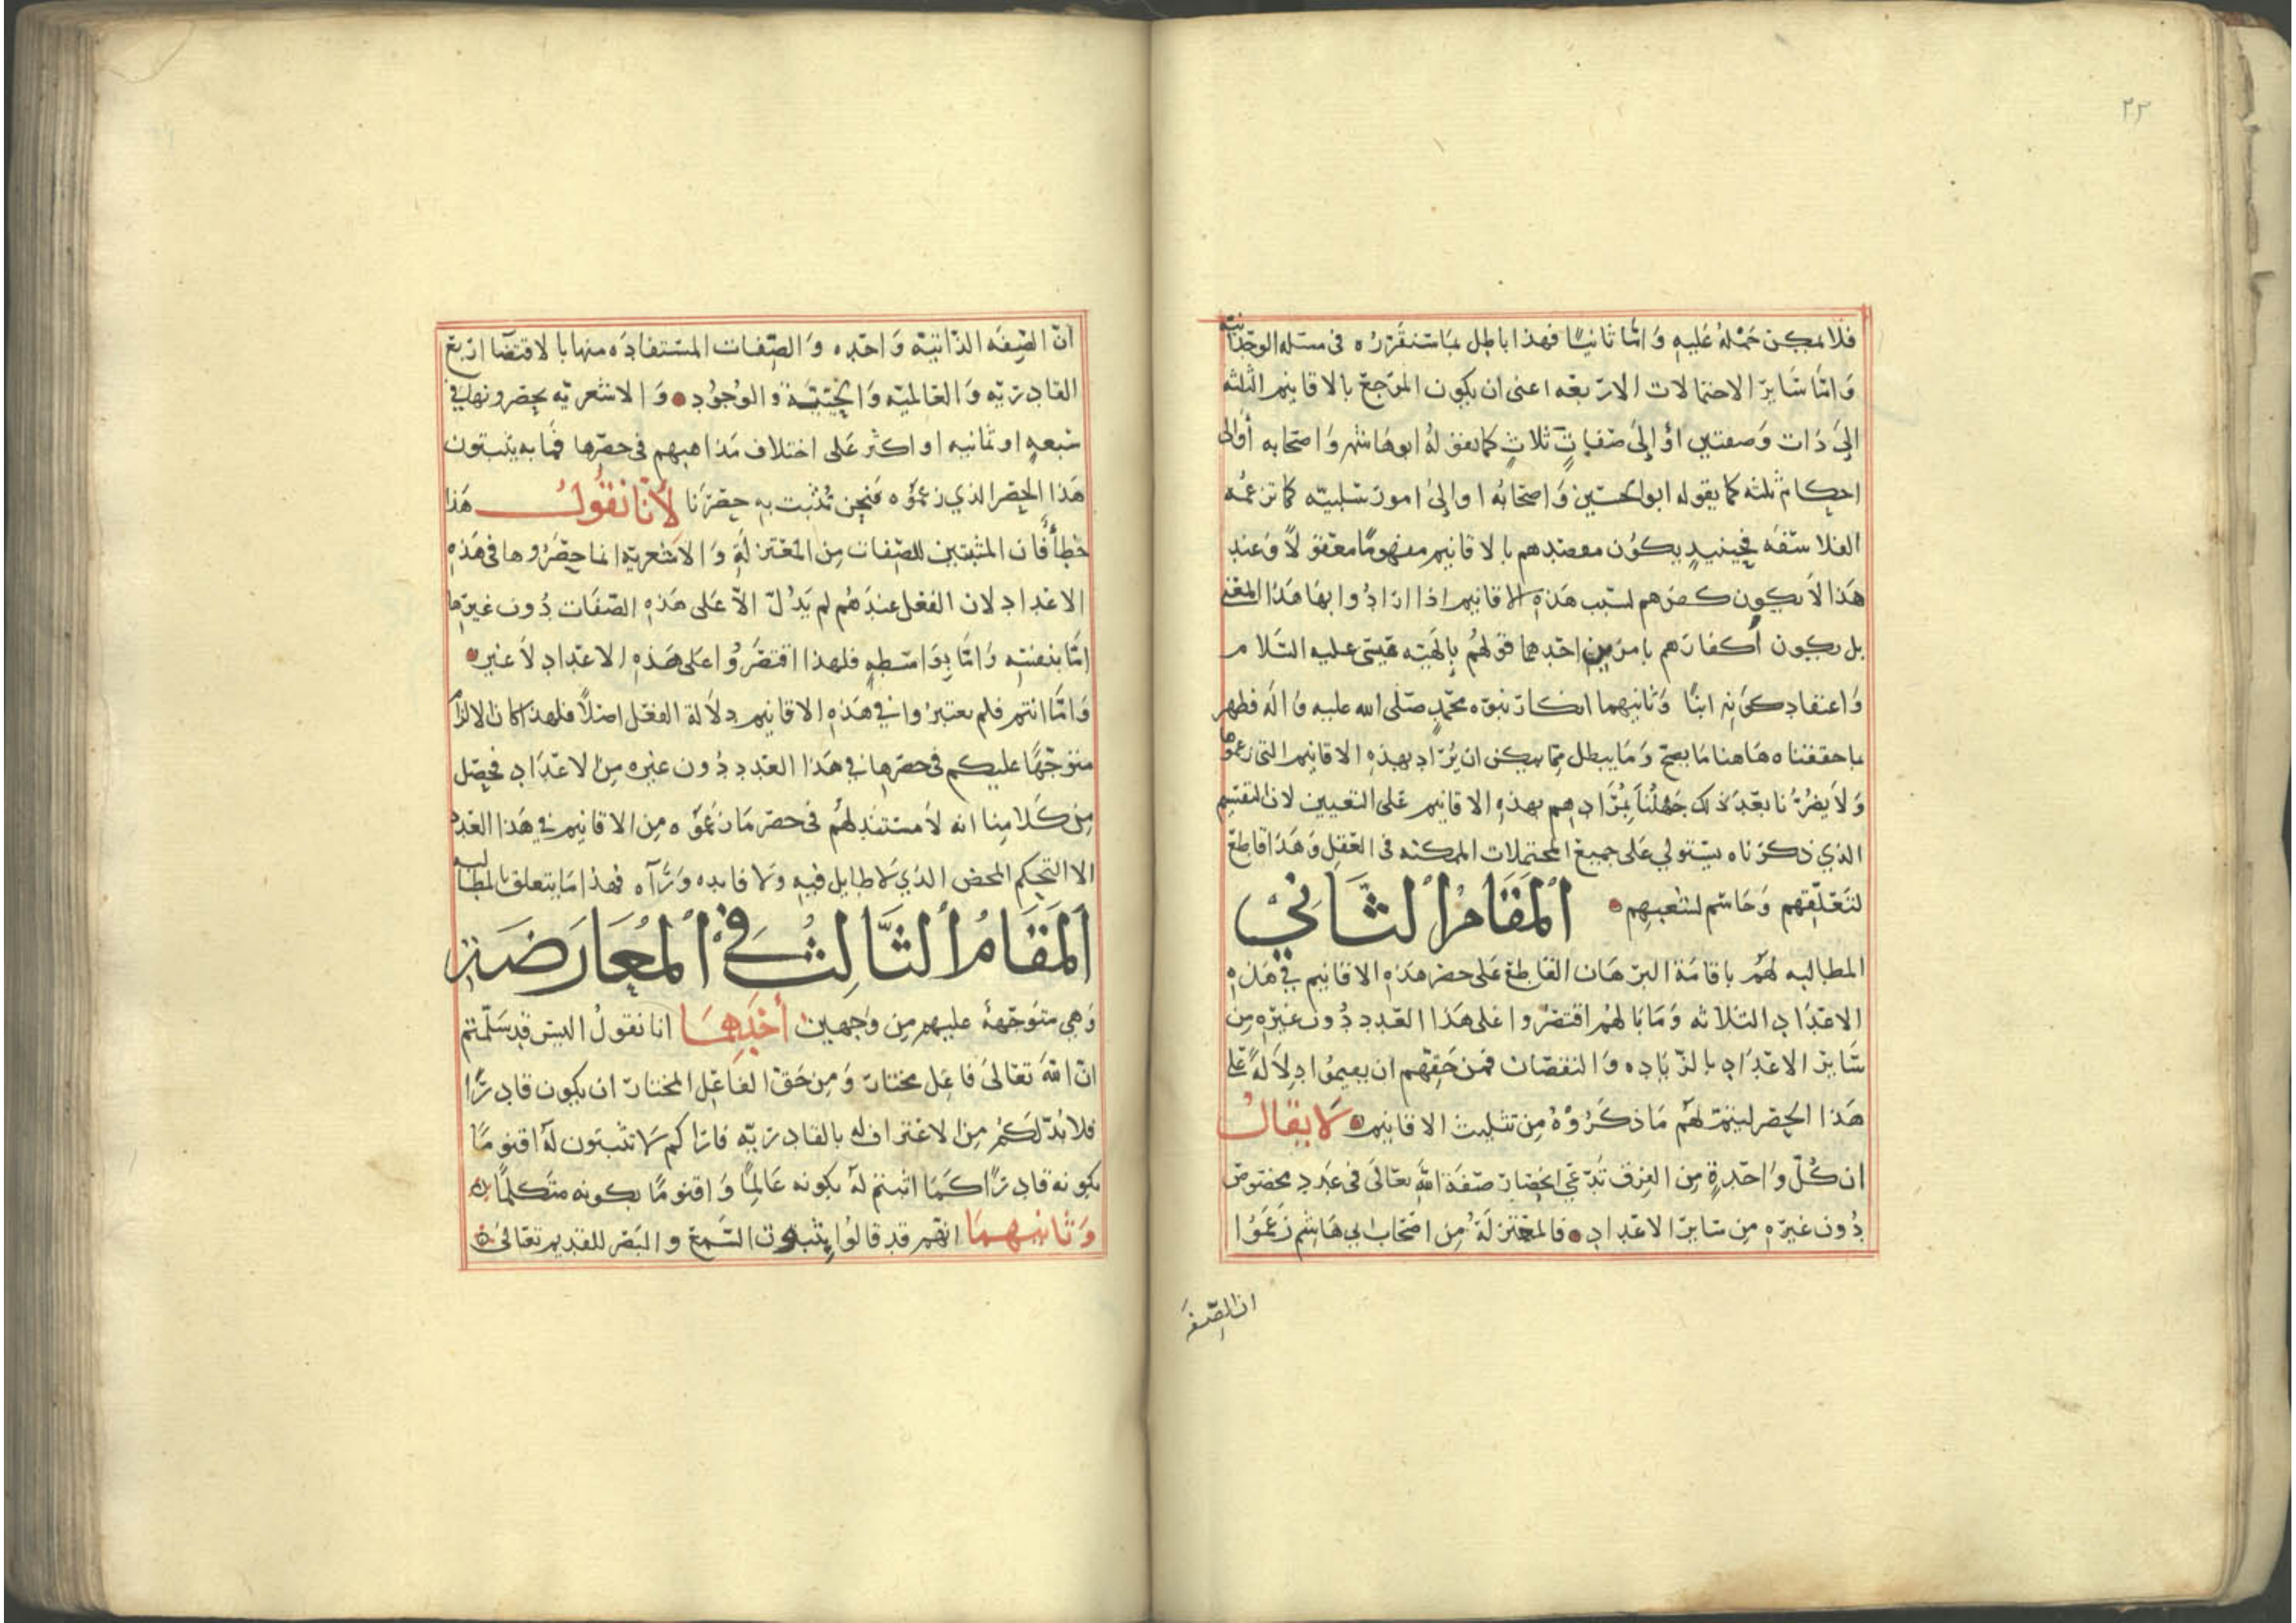 ٢٢
فلا يمكن حمله عليه وَامّا ثانيًا فهذا باطل بما سنقرّره فى مسئله الوحدانيّه
وَامّا سَاير الاحتمالات الاربعه اعنى ان يكون المرجع بالاقانيم الثلثه
الىَ ذات وَصفتين اوْ إلىَ صفاتٍ ثلاثٍ كما يقوله ابوهاشم وَاصحابه أو الى
احكام ثلثه كما يقوله ابوالحسَين وَاصحَابُه او الىٰ امور سَلبيّه كما تزعمُه
الفلاسَفَه فحينيدٍ يكوُن مقصدهم بالاقانيم مفهومًا معقولًا وَعند
هَذا لاَ يكون كفرهم لسَبب هَذهِ الاقانيم اذا ارَادُوا بهَا هَذا المعنى
بل يكون أكفارهم بامرَين احَدهما قولهُم بإلَهيّه عيسَى عليه السَلام
وَاعتقاد كونه ابنًا وَثانيهما انكار نبوّه محمّدٍ صَلّى الله عليه وَاله فظهر
بما حققناه هَاهنا مَا يصحّ وَمَا يبطل ممّا يمكن ان يُرَاد بهذهِ الاقانيم التى زعموها
وَلاَ يضرُّنا بعَد ذلك جَهْلُنَا بمُرَادِهِم بهذهِ الاقانيم عَلى التعيين لان التقسيم
الذي ذكرناه يسَتولي عَلى جميع المحتملات الممكنه فى العَقلِ وَهَذا قاطعٌ
لتَعَلّقِهم وَحَاسم لشَعبِهم
اَلمَقَامُ الثَانِي
المطالبه لهُم باقامَة البرهَان القاطع عَلى حصر هَذهِ الاقانيم في هَذهِ
الاعدَادِ الثلاثه وَمَا بَالهُم اقتصَروا عَلى هَذا العَدد دُون غيرهِ من
سَاير الاعَدادِ بالزّيَاده وَالنقصَان فمن حَقّهِم ان يقيموُا دِلاَلَهً عَلى
هَذا الحصْر ليتمّ لهُم مَا ذكَرُوهُ مِن تثليث الاقانيم لاَ يقَالُ
ان كُلّ وَاحَدةٍ مِن الفِرَق تَدّعي انحِصَار صَفة الله تعَالىَ فى عَدد مخصوص
دُون غيرَهِ مِن سَاير الاعَداد فالمعَتزلَةُ مِن اصْحَاب ابي هَاشم زَعَمُوا
ان الصّفه
انّ الصِّفَه الذاتيّه وَاحَده وَالصِّفات المستفادَه منها بالاقتضَا اربع
القادريّه وَالعَالميّه وَالحَيّيَّة وَالوُجوُد وَالاشعريّه يحصرونها في
سَبعهٍ او ثمانيه او اكثر عَلى اختلاف مَذاهبهم فى حصرّها فمَا به يثبتون
هَذا الحصر الذي زعمُوه فنحن نُثبت به حصْرَنا لاَنّا نَقُولُ هَذا
خطأٌ فان المثبتين للصِّفات مِن المعَتزلَةِ وَالاَشعريّه انما حصَرُوها فى هَذهِ
الاعَداد لان الفعَل عندَهُم لم يَدُلّ الاّ عَلى هَذهِ الصّفَات دُون غيرهَا
امّا بنفسَه وَامّا بوَاسَطهٍ فلهذا اقتصَرُوا عَلى هَذهِ الاعَداد لاَ غير
وَامّا انتم فلم يعتبرُوا في هَذهِ الاقانيم دلاَلة الفعَل اصلًا فلهذا كان الالزام
متوَجّهًا عليكم فى حصرها في هَذا العَدد دُون غيره مِن الاعَدَاد فحصَل
مِن كَلامِنا انه لاَ مستَند لهُم فى حصر مَا زعَمُوه مِن الاقانيم في هَذا العَدد
الا التحكّم المحض الذي لاَ طايل فيهِ وَلا فايده وَرَآه فهذا مَا يتعلق بالمطالبه
اَلمَقَامُ الثَّالِثُ فِي المُعَارَضَةِ
وَهي متوَجّههٌ عليهم مِن وَجهين أحَدَهمَا انا نقولُ اليسَ قد سَلّمتم
انّ اللهَ تعَالىَ فاعِل مختار وَمِن حَقّ الفاعِل المختار ان يكون قادرًا
فلا بُدّ لكُم مِن الاعَتراف له بالقادريّه فما بالكم لا تثبتون لهُ اقنومًا
بكونه قادرًا كمَا اثبتم لهُ بكونه عَالمًا وَاقنومًا بكونه متكلّمًا
وَثَانيهمَا انّهم قد قالوُا بثبوت السَّمع والبَصَر للقديم تعَالىَ